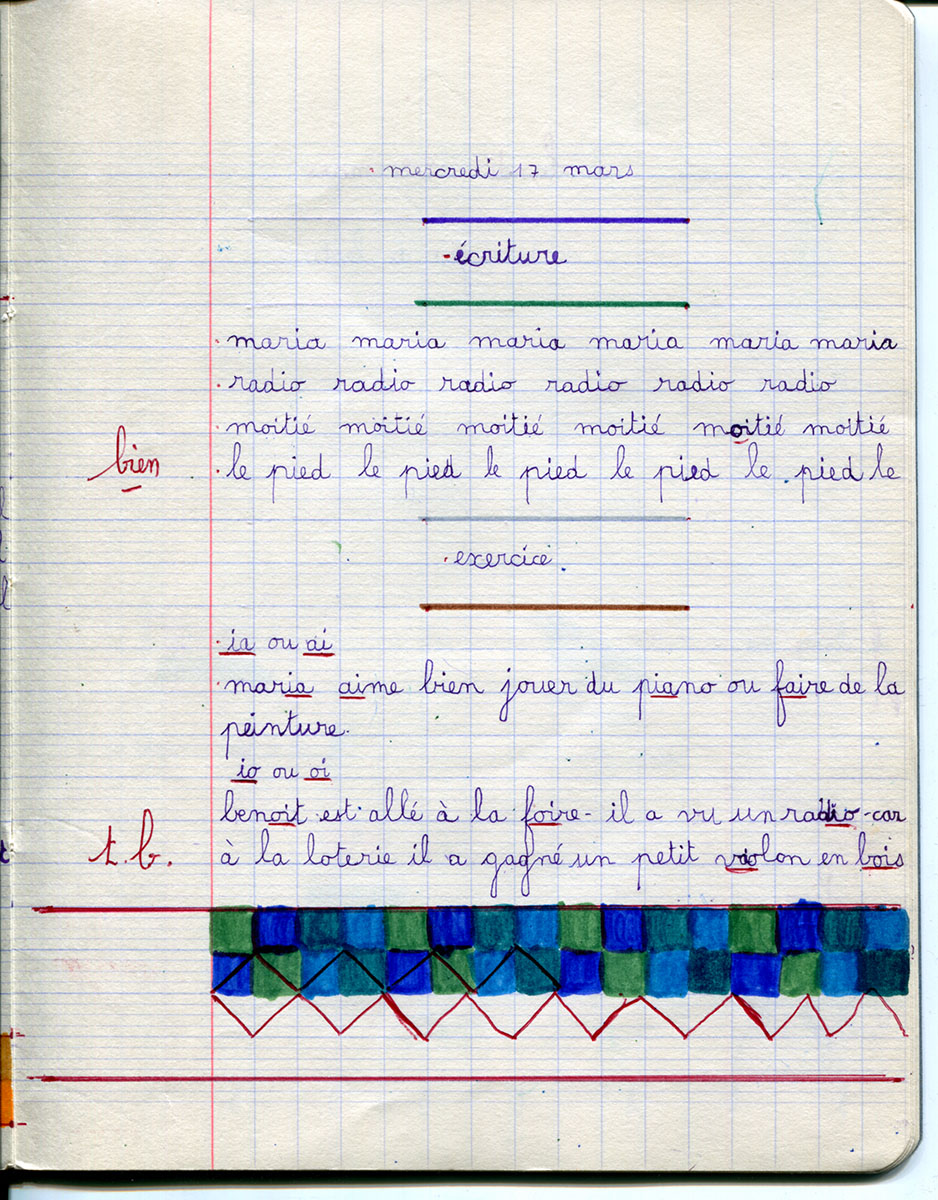 mercredi 17 mars
écriture
maria maria maria maria maria maria
radio radio radio radio radio radio
moitié moitié moitié moitié moitié moitié
bien
le pied le pied le pied le pied le pied le
exercice.
ia ou ai
maria aime bien jouer du piano ou faire de la
peinture.
io ou oi
benoit est allé à la foire - il a vu un radio-car
t. b.
à la loterie il a gagné un petit violon en bois